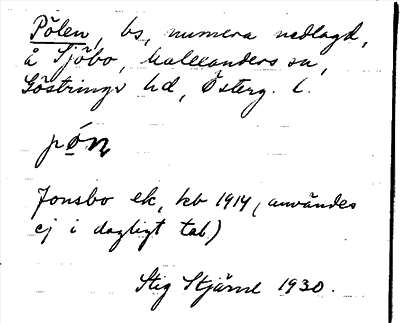 Pölen, bs, numera nedlagd,
å Sjöbo, Malexanders sn,
Göstrings hd, Österg. l.
pó̲n
Jonsbo ek, kb 1914, (användes
ej i dagligt tal)
Stig Stjärne 1930.